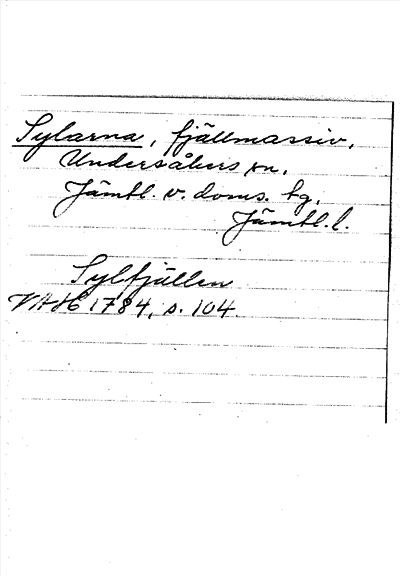 Sylarna, fjällmassiv,
Undersåkers sn,
Jämtl. v. doms. tg,
Jämtl. l.
Sylfjällen
VAH 1784, s. 104